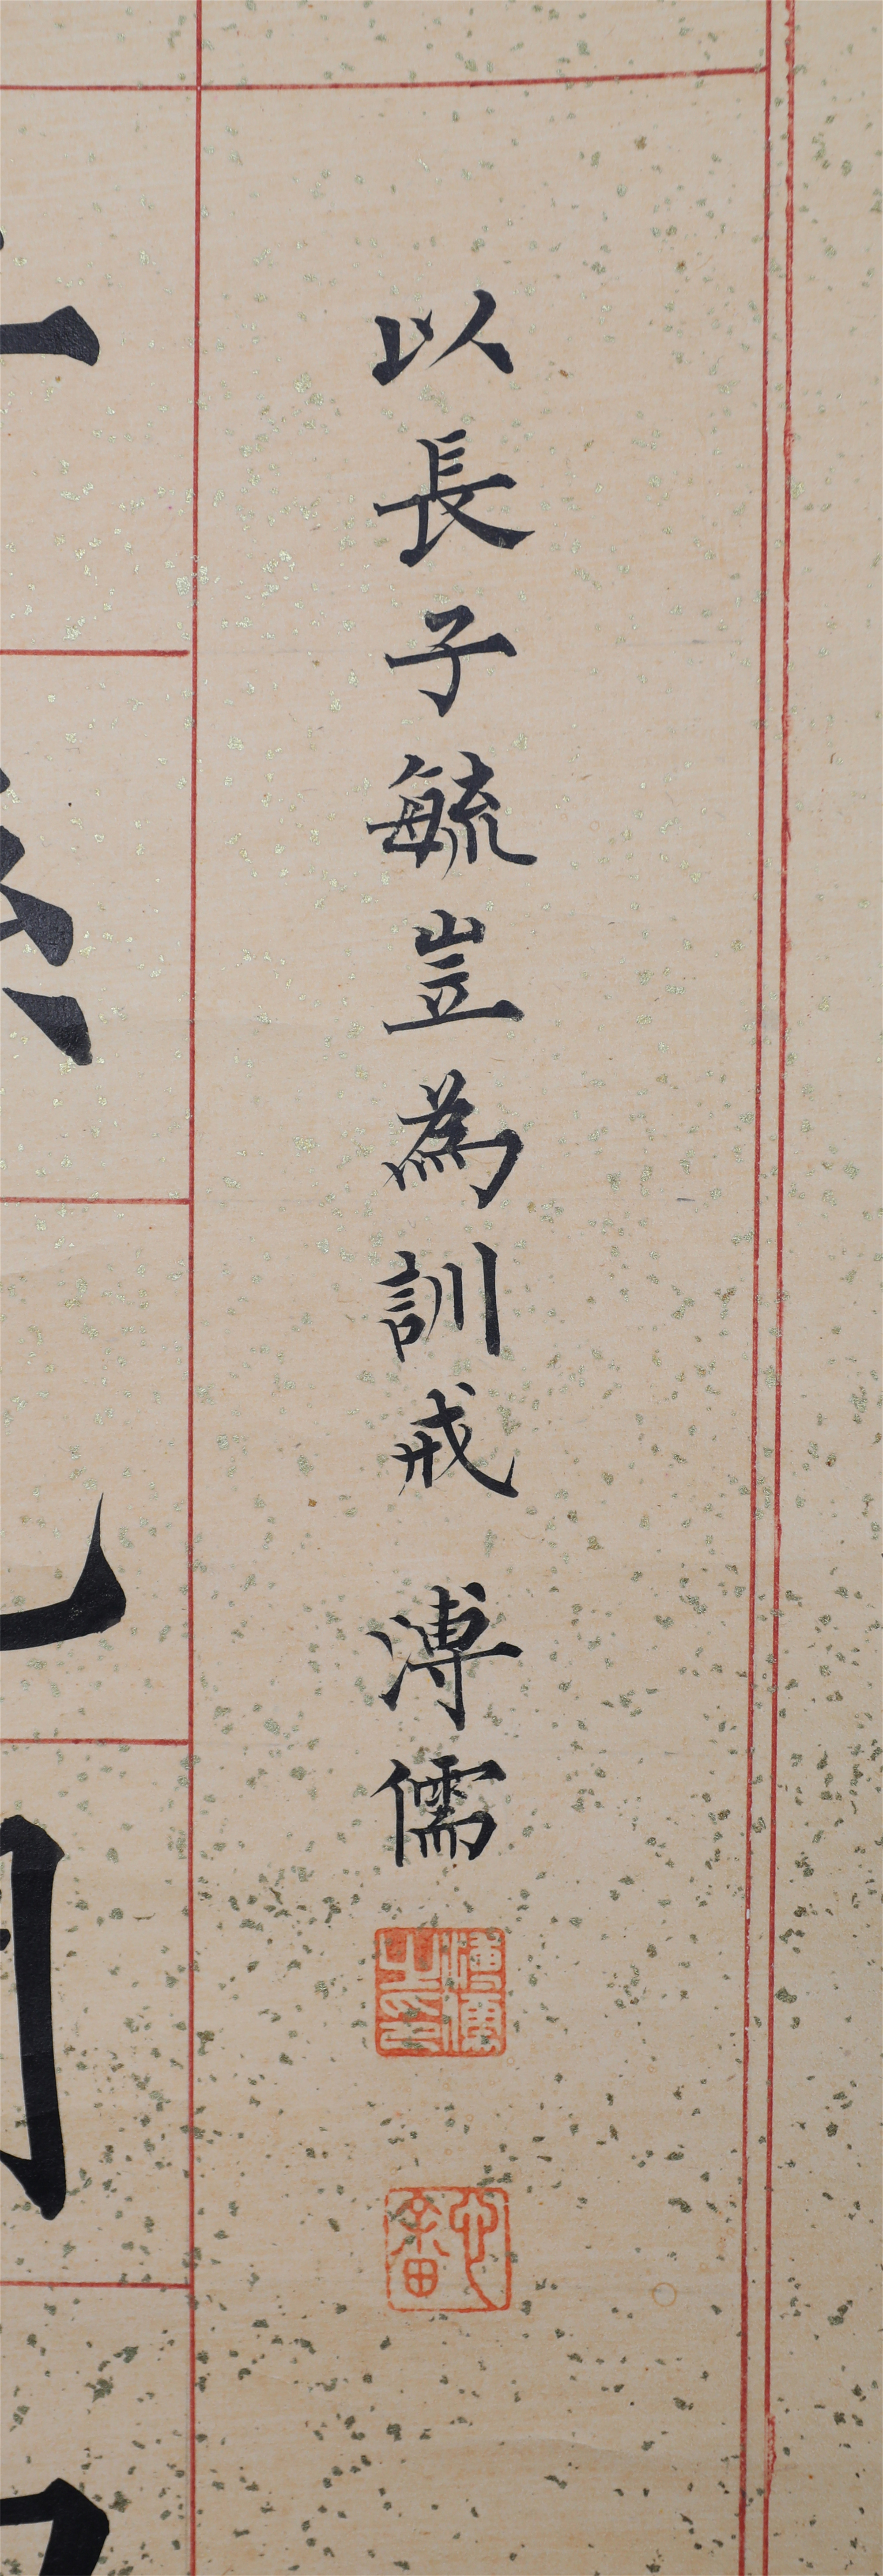 以長子毓豈為訓戒 溥儒
溥儒之印
心畬